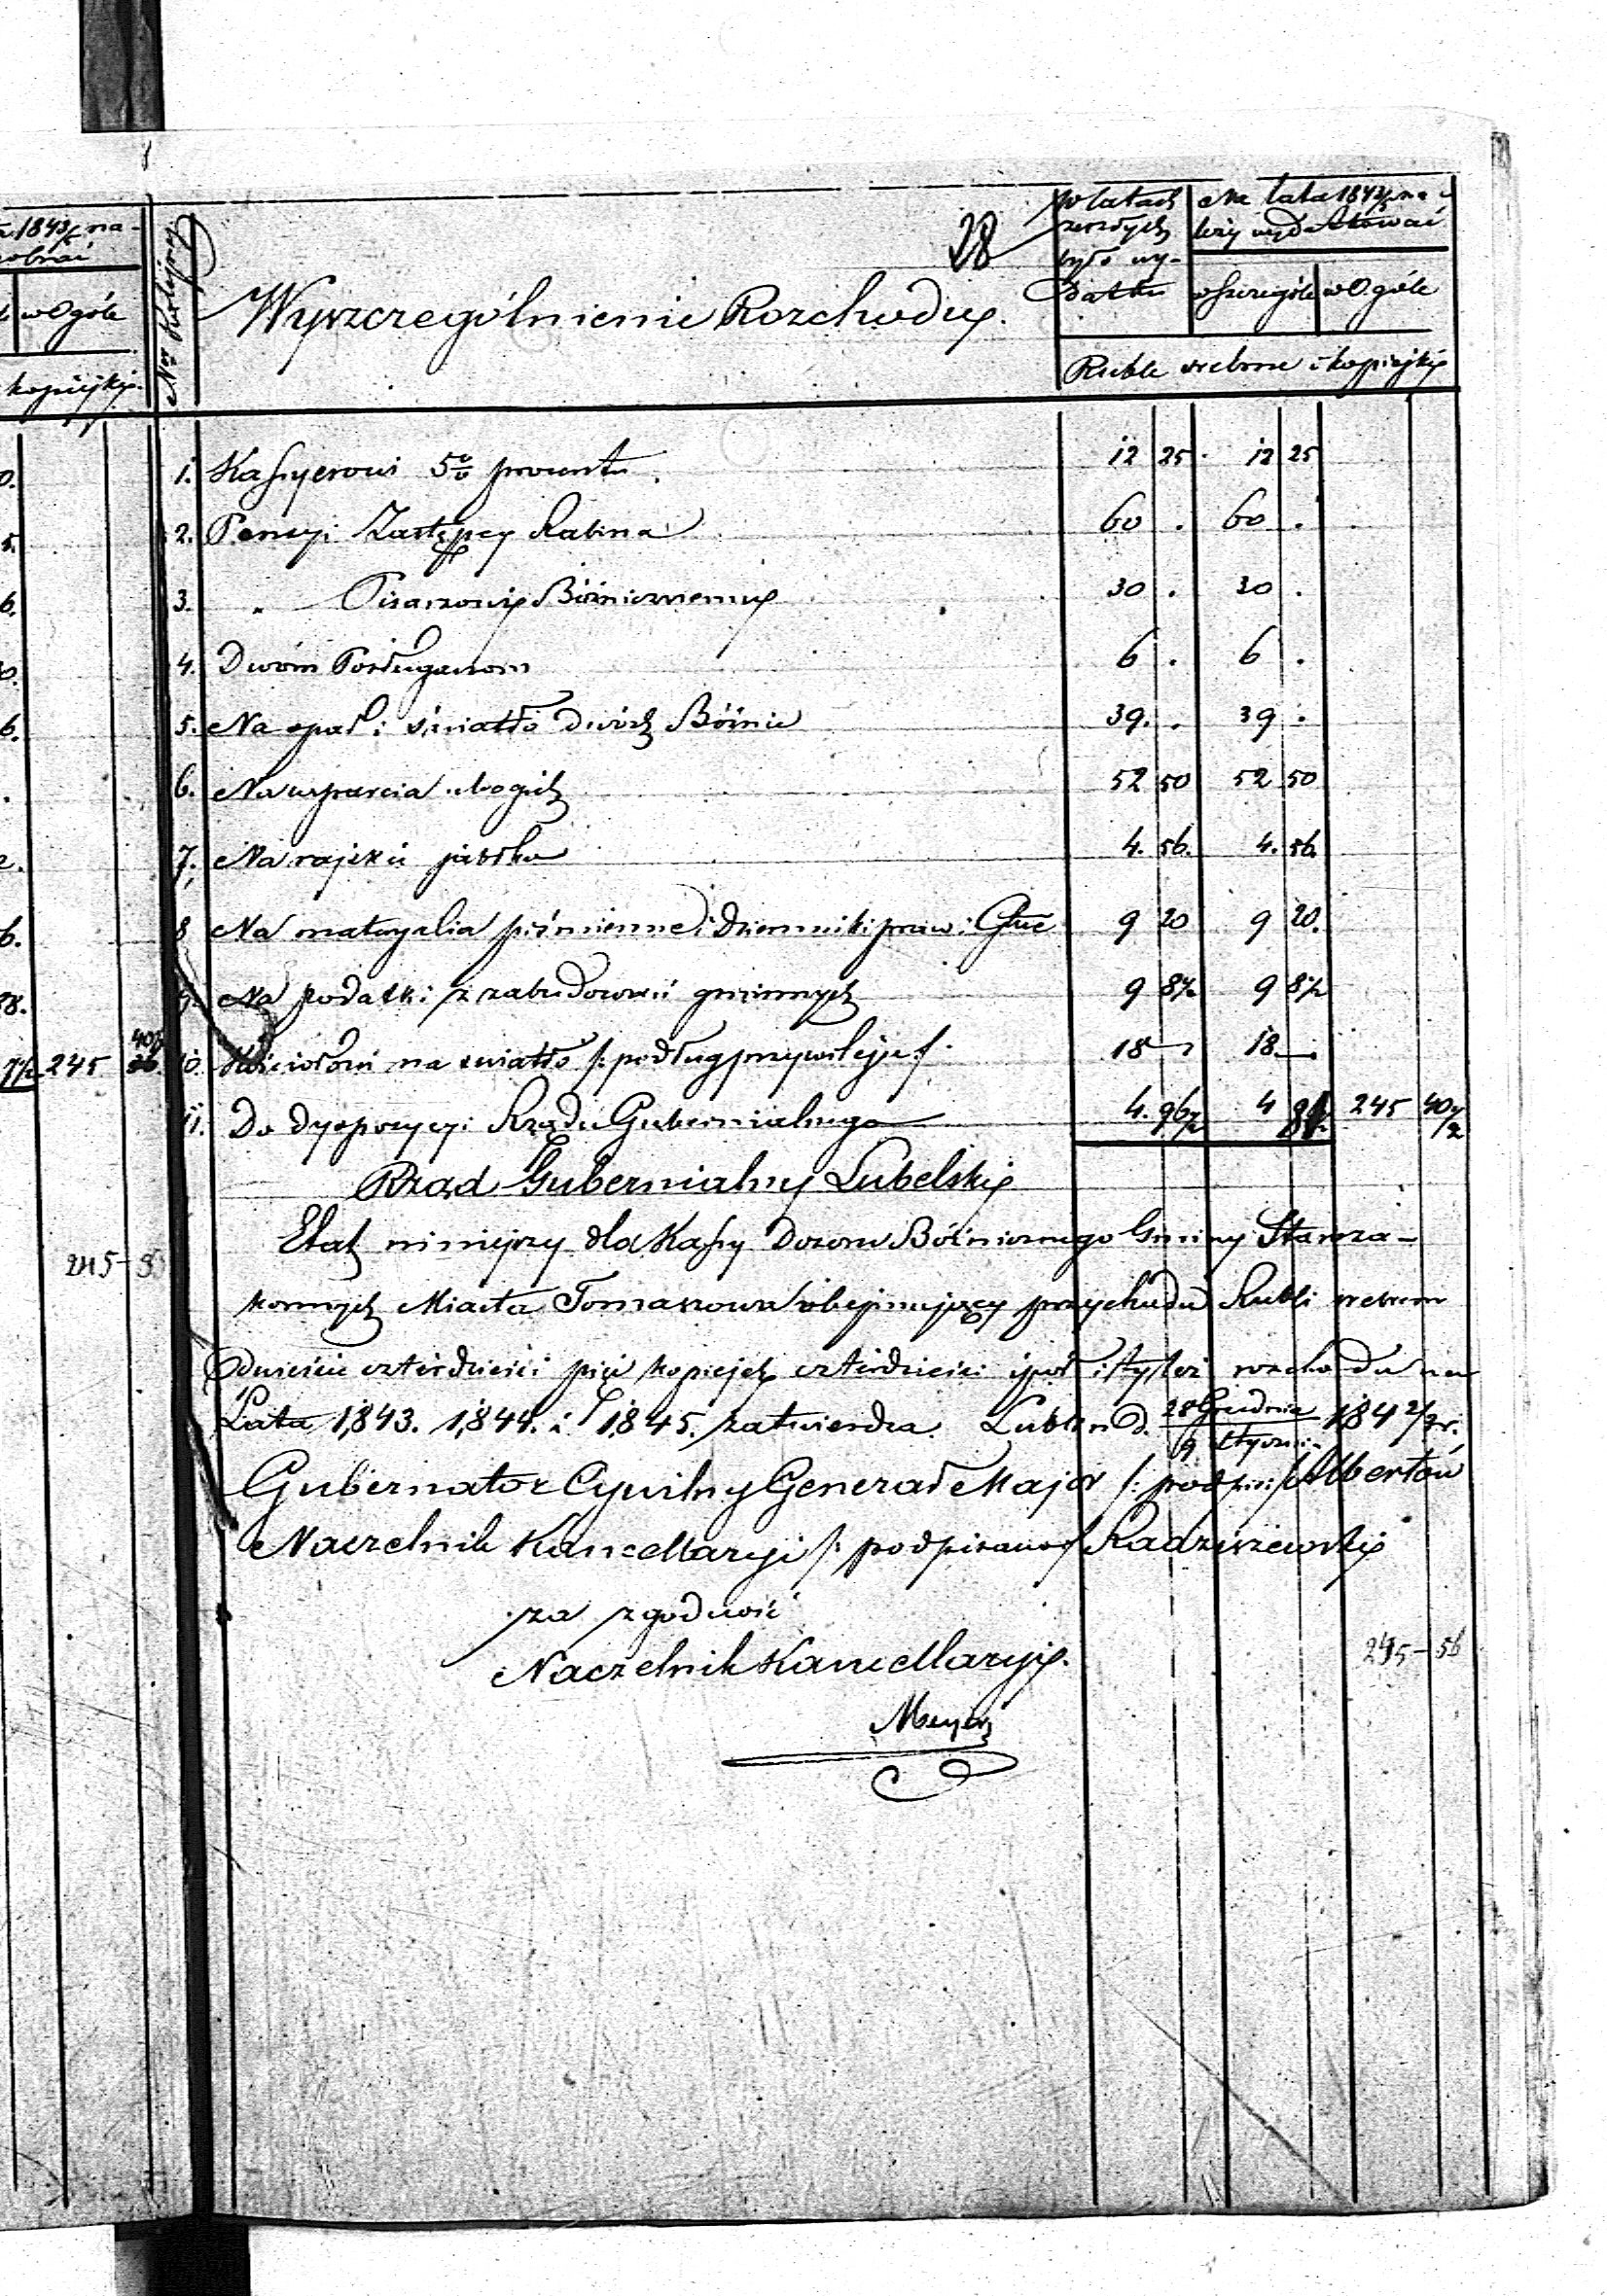 28
Nos Kolejny
Wyszczególnienie Rozchodu.
w latach zeszłych było wydatku
Na lata 1843/5 należy wydatkować
w szczególe
w Ogóle
Ruble srebrne i kopiejki
1843/5 na-
w Ogóle
kopiejki.
1. Kassyerowi 5% procentu 12 25 12 25
2. Pensyi Zastępcy Rabina 60 . 60 .
3. " Pisarzowi Bóżnicznemu 30 . 30 .
4. Dwóm Posługaczom 6 . 6 .
5. Na opał i światło dwóch Bóżnic 39 . 39 .
6. Na wsparcia ubogich 52 50 52 50
7. Na rajskie jabłko 4. 56. 4. 56.
8 Na materyalia piśmienne i Dzienniki praw i Gub 9 20 9 20.
9. Na podatki z zabudowań gminnych 9 8½ 9 8½
10. Kościołowi na światło /: podług przywileju :/ 18 — 18 —
11. Do dyspozycyi Rządu Gubernialnego 4. 96½ 4 245 40½
245
Rząd Gubernialny Lubelski
Etat niniejszy dla Kassy Dozoru Bóżnicznego Gminy Staroza-
konnych Miasta Tomaszowa obejmujący przychodu Rubli srebrem
dwieście czterdzieści pięć kopiejek czterdzieści i pół i tyleż rozchodu na
Lata 1,843. 1,844. i 1,845. zatwierdza. Lublin d. 28 Grudnia / 9 Stycznia 1842/3 r.
Gubernator Cywilny Generał Major /: podpis :/ Albertow
Naczelnik Kancellaryi /: podpisano :/ Radziszewski
za zgodność
Naczelnik Kancellaryi.
245 - 56
Meyer